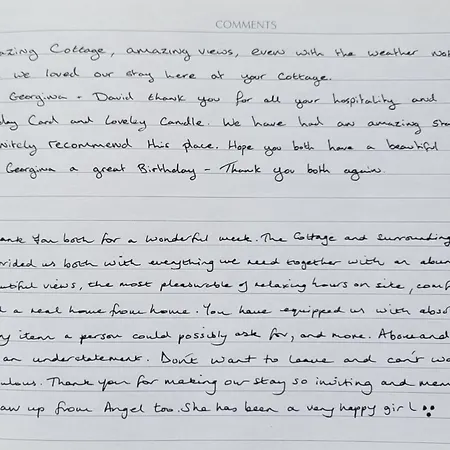 COMMENTS
azing Cottage, amazing views, even with the weather not
we loved our stay here at your cottage.
Georgina + David thank you for all your hospitality and
day Card and Loveley Candle. We have had an amazing sta
nitly recommend this place. Hope you both have a beautiful
Georgina a great Birthday - Thank you both again.
ank You both for a wonderful week. The Cottage and surrounding
vided us both with everything we need together with an abun
utiful views, the most pleasurable of relaxing hours on site, comf
d a real home from home. You have equipped us with abso
ry item a person could possibly ask for, and more. Above and
an understatement. Don't want to leave and can't wa
ulous. Thank you for making our stay so inviting and mem
aw up from Angel too. She has been a very happy girl